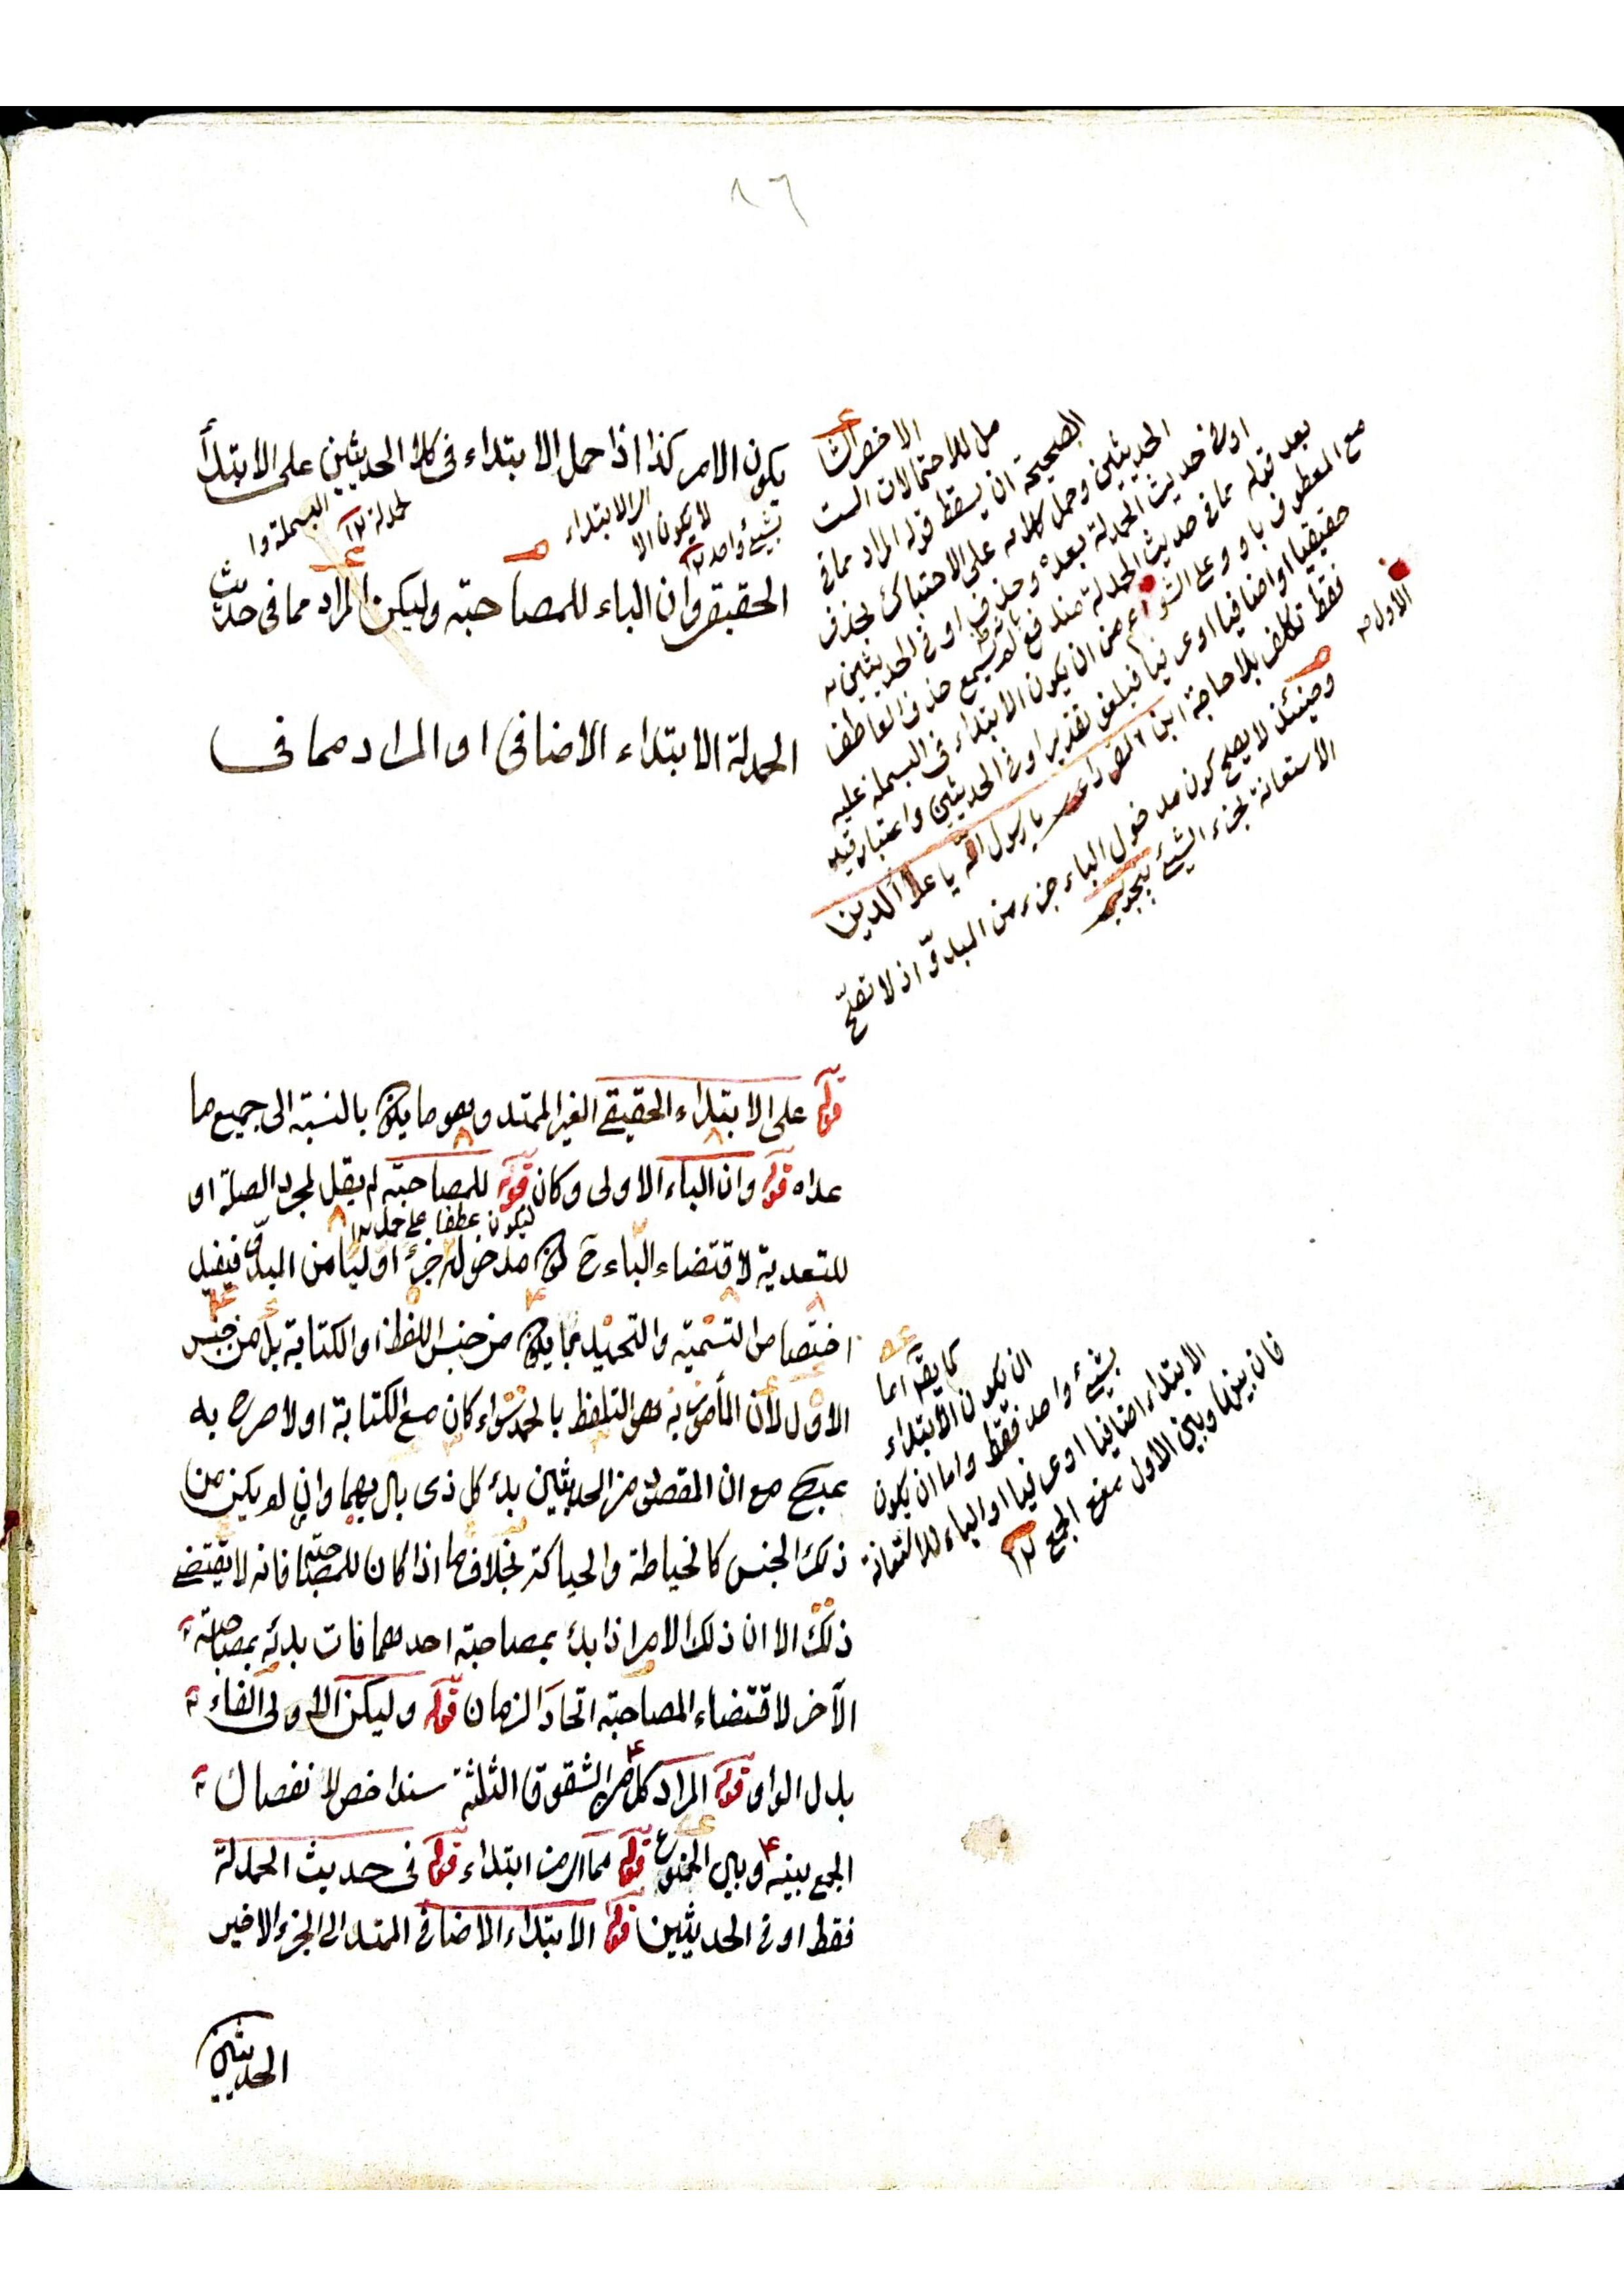 ٨٦
يكون الامر كذا اذا حمل الابتداء فى كلا الحديثين على الابتدأ
اى الابتداء
لا يكون الا
بشئ واحد
البسملة وا
لحمدلة
الحقيقى وان الباء للمصاحبة وليكن المراد مما فى حديث
الحمدلة الابتداء الاضافى او المراد مما فى
الاخصر
مل للاحتمالات الست
الصحيحة ان يسقط قوله المراد مما فى
الحديثين وحمل كلامه على الاحتباك بحذف
او فى حديث الحمدلة بعده وحذف او فى الحديثين
بعد قوله مما فى حديث الحمدلة مندفع لم يسمع حذف العاطف
مع المعطوف باو وعلى اعم من ان يكون الابتداء فى البسملة عليه
حقيقيا او اضافيا او عرفيا فيلغو تقدير او فى الحديثين واعتبار قيد
فقط تكلف بلا حاجة ابن يا رسول الله يا علاء الدين
الاول
وحينئذ لا يصح كون مدخول الباء جزء من المبدوّ اذ لا تصح
الاستعانة لجزء الشئ
قوله على الابتداء الحقيقى الغير الممتد وهو ما يكون بالنسبة الى جميع ما
عداه قوله وان الباء الاولى وكان قوله للمصاحبة لم يقل لمجرد الصلة او
ليكون عطفا على حمل
للتعدية لاقتضاء الباء ح كون مدخوله جزءً اوليا من المبدوّ فيفيد
اختصاص التسمية والتحميد بما يكون من جنس اللفظ او الكتابة بل من جنس
الاول لان المأمور به هو التلفظ بالحمد سواء كان مع الكتابة او لا صرح به
مع ان المقصود من الحديثين بدء كل ذى بال بهما وان لم يكن من
ذلك الجنس كالخياطة والحياكة بخلاف ما اذا كان للمصاحبة فانه لا يقتضى
ذلك الا ان ذلك الامر اذا بدء بمصاحبة احدهما فات بدئه بمصاحبة
الآخر لاقتضاء المصاحبة اتحاد الزمان قوله وليكن الاولى الفاء
بدل الواو قوله المراد كل من الشقوق الثلثة سند اخص لانفصال
الجمع بينه وبين الممنوع قوله مما اى من ابتداء قوله فى حديث الحمدلة
فقط او فى الحديثين قوله الابتداء الاضافى الممتد الى الجزء الاخير
كما يقال اما
ان يكون الابتداء
بشئ واحد فقط واما ان يكون
الابتداء اضافيا او عرفيا او الباء للاستعانة
فان بينها وبين الاول منع الجمع
الحديثين